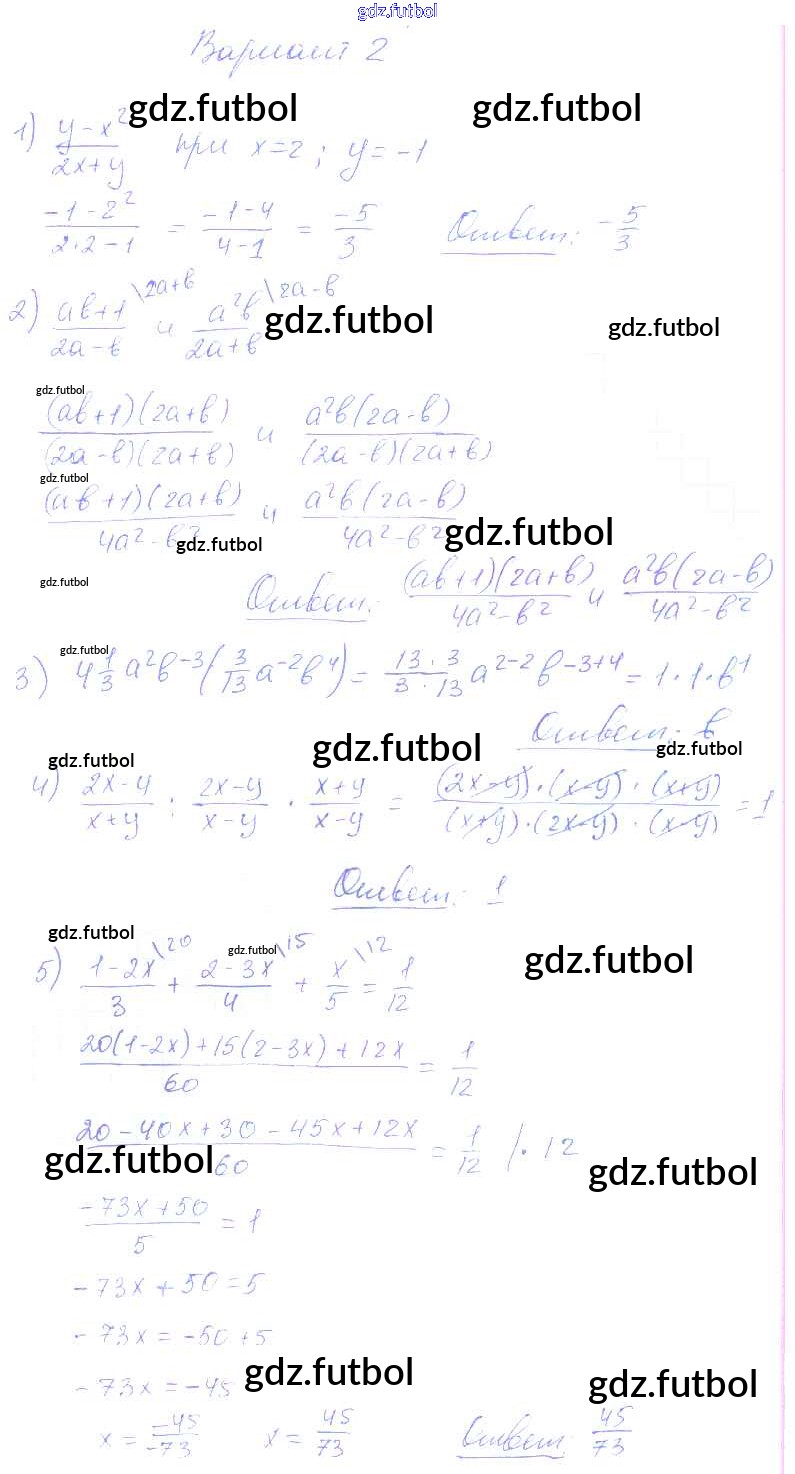 gdz.futbol
Вариант 2
gdz.futbol gdz.futbol
1) (y-x²)/(2x+y) при x=2; y=-1
(-1-2²)/(2·2-1) = (-1-4)/(4-1) = (-5)/3 Ответ: -5/3
2) (ab+1)/(2a-b) \2a+b и (a²b)/(2a+b) \2a-b
gdz.futbol gdz.futbol
gdz.futbol
((ab+1)(2a+b))/((2a-b)(2a+b)) и (a²b(2a-b))/((2a-b)(2a+b))
gdz.futbol
((ab+1)(2a+b))/(4a²-b²) и (a²b(2a-b))/(4a²-b²)
gdz.futbol gdz.futbol
gdz.futbol
Ответ: ((ab+1)(2a+b))/(4a²-b²) и (a²b(2a-b))/(4a²-b²)
gdz.futbol
3) 4 1/3 a²b⁻³(3/13 a⁻²b⁴) = (13·3)/(3·13) a²⁻²b⁻³⁺⁴ = 1·1·b¹
Ответ: b
gdz.futbol gdz.futbol gdz.futbol
4) (2x-y)/(x+y) : (2x-y)/(x-y) · (x+y)/(x-y) = ((2x-y)·(x-y)·(x+y))/((x+y)·(2x-y)·(x-y)) = 1
Ответ: 1
gdz.futbol gdz.futbol gdz.futbol
5) (1-2x)/3 \20 + (2-3x)/4 \15 + x/5 \12 = 1/12
(20(1-2x)+15(2-3x)+12x)/60 = 1/12
(20-40x+30-45x+12x)/60 = 1/12 |·12
gdz.futbol gdz.futbol
(-73x+50)/5 = 1
-73x+50=5
-73x=-50+5
gdz.futbol gdz.futbol
-73x=-45
x = (-45)/(-73) x = 45/73 Ответ: 45/73